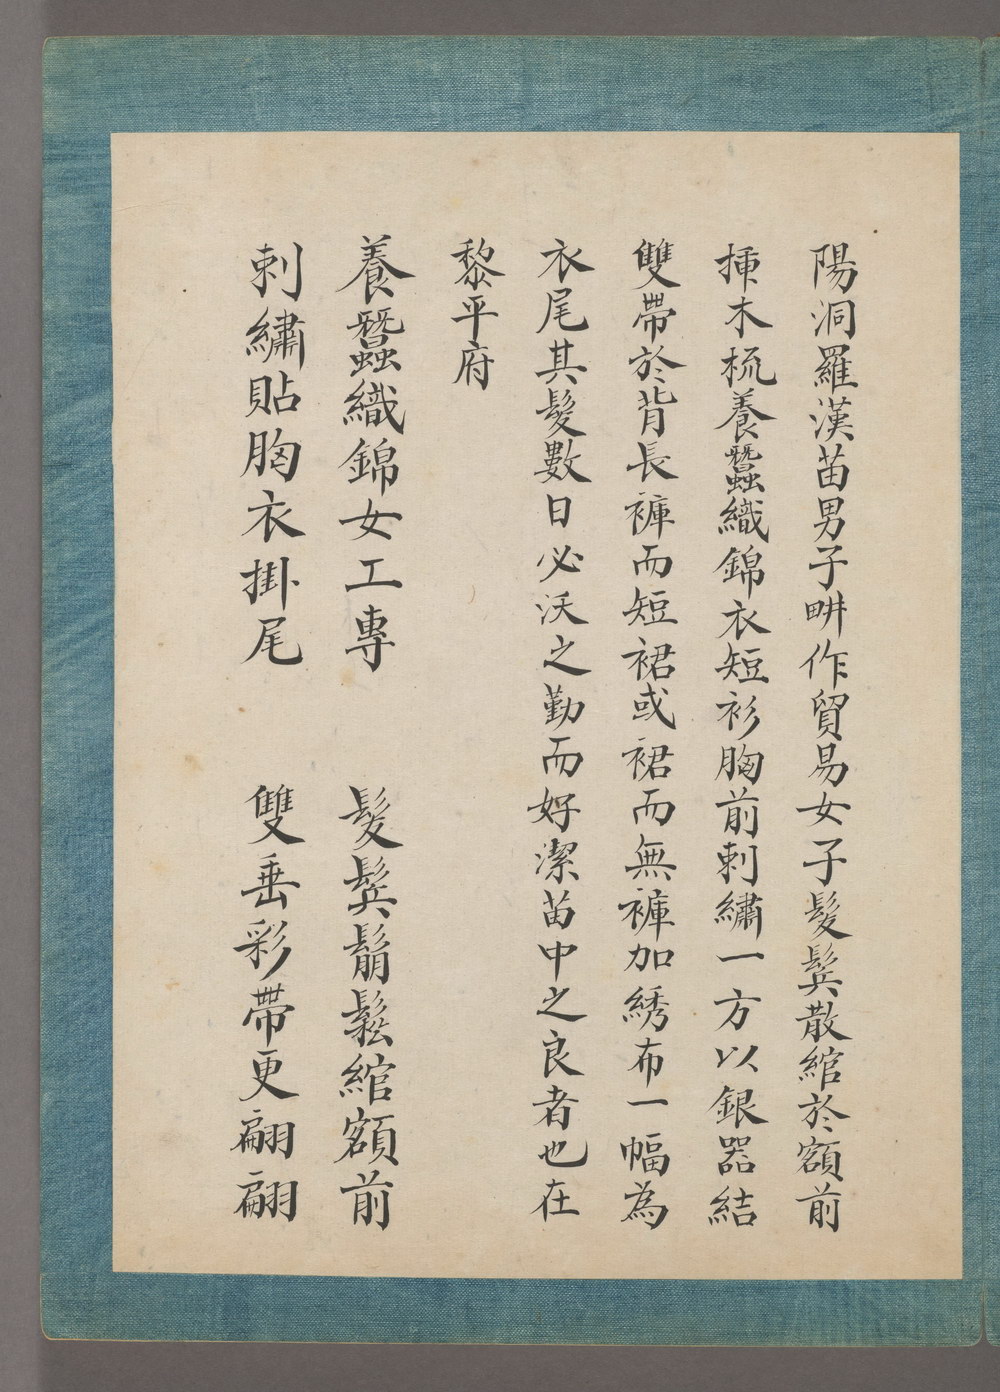 陽洞羅漢苗男子畊作貿易女子髮鬂散綰於額前
揷木梳養蠶織錦衣短衫胸前刺繡一方以銀器結
雙帶於背長褲而短裙或裙而無褲加綉布一幅為
衣尾其髮數日必沃之勤而好潔苗中之良者也在
黎平府
養蠶織錦女工專　髮鬂鬅鬆綰額前
刺繡貼胸衣掛尾　雙垂彩帶更翩翩